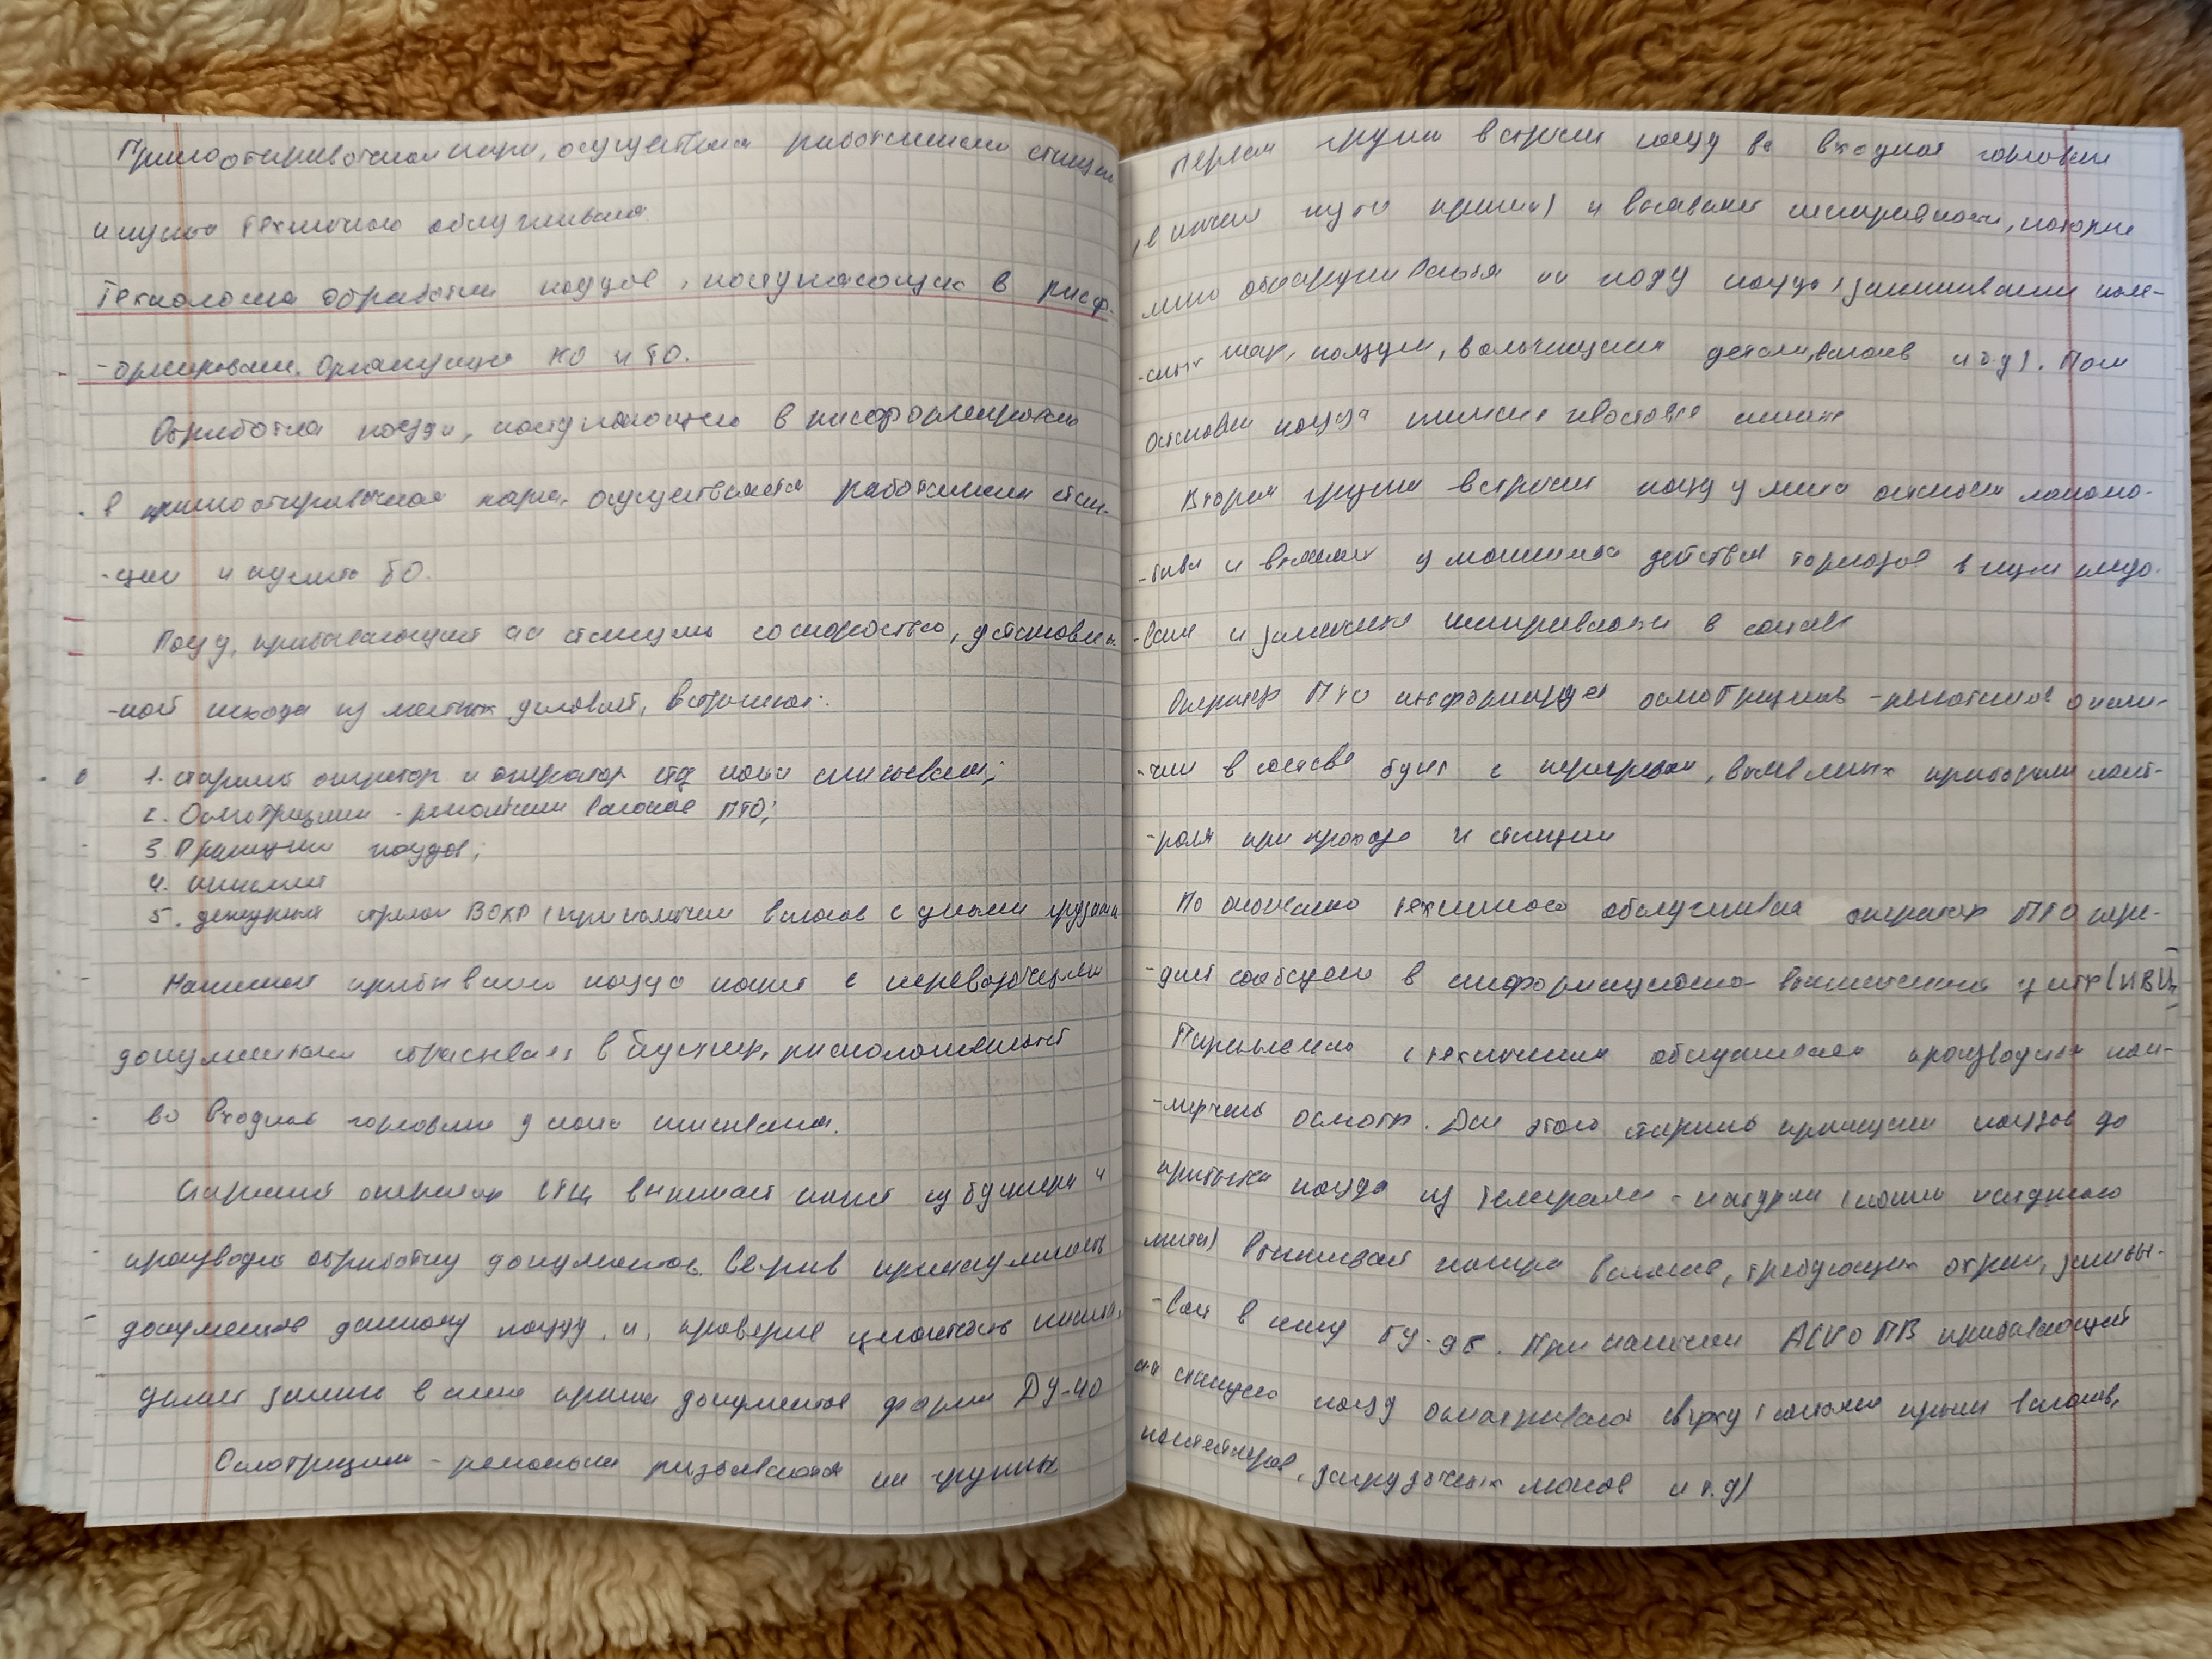 Приемоотправочном парке, осуществляется работниками станции
и пункта технического обслуживания.
Технология обработки поездов, поступающих в расф-
-ормирование. Организация КО и ТО.
Обработка поезда, поступающего в расформирование
в приемоотправочный парк, осуществляется работниками стан-
-ции и пункта ТО.
Поезд, прибывающий на станцию со скоростью, установлен-
-ной исходя из местных условий, встречают:
1. старший оператор и оператор СТЦ поста списывания;
2. Осмотрщики - ремонтники вагонов ПТО;
3. Приемщики поездов;
4. 
5. дежурный стрелок ВОХР (при наличии вагонов с ценными грузами
Машинист прибывшего поезда пакет с перевозочными
документами сбрасывает в бункер, расположенный
во входной горловине у поста списывания.
Старший оператор СТЦ вынимает пакет из бункера и
производит обработку документов. Сверив принадлежность
документов данному поезду, и, проверив целостность пакета,
делает запись в книге приема документов формы ДУ-40
Осмотрщики - ремонтники разбиваются на группы
Первая группа встречает поезд во входной горловине
(в начале пути приема) и выявляет неисправности, которые
легко обнаруживаются на ходу поезда (заклинивание колес-
-ных пар, ползуны, волочащиеся детали вагонов и т.д). После
остановки поезда хвостовые
Вторая группа встречает поезд у места остановки локомо-
-тива и выясняет у машиниста действия тормозов в пути следо-
-вания и замеченные неисправности в составе
Оператор ПТО информирует осмотрщиков - ремонтников о нали-
-чии в составе букс с перегревом, выявленных приборами конт-
-роля при проходе к станции
По окончанию технического обслуживания оператор ПТО пере-
-дает сообщение в информационно-вычислительный центр (ИВЦ)
Параллельно с техническим обслуживанием производится ком-
-мерческий осмотр. Для этого старший приемщик поездов до
прибытия поезда из телеграммы - натурки (копии натурного
листа) выписывает номера вагонов, требующих охраны, записы-
-вает в книгу ГУ-98. При наличии АСКО ПВ прибывающий
на станцию поезд осматривается сверху (состояние крыш вагонов,
контейнеров, загрузочных люков и т.д)